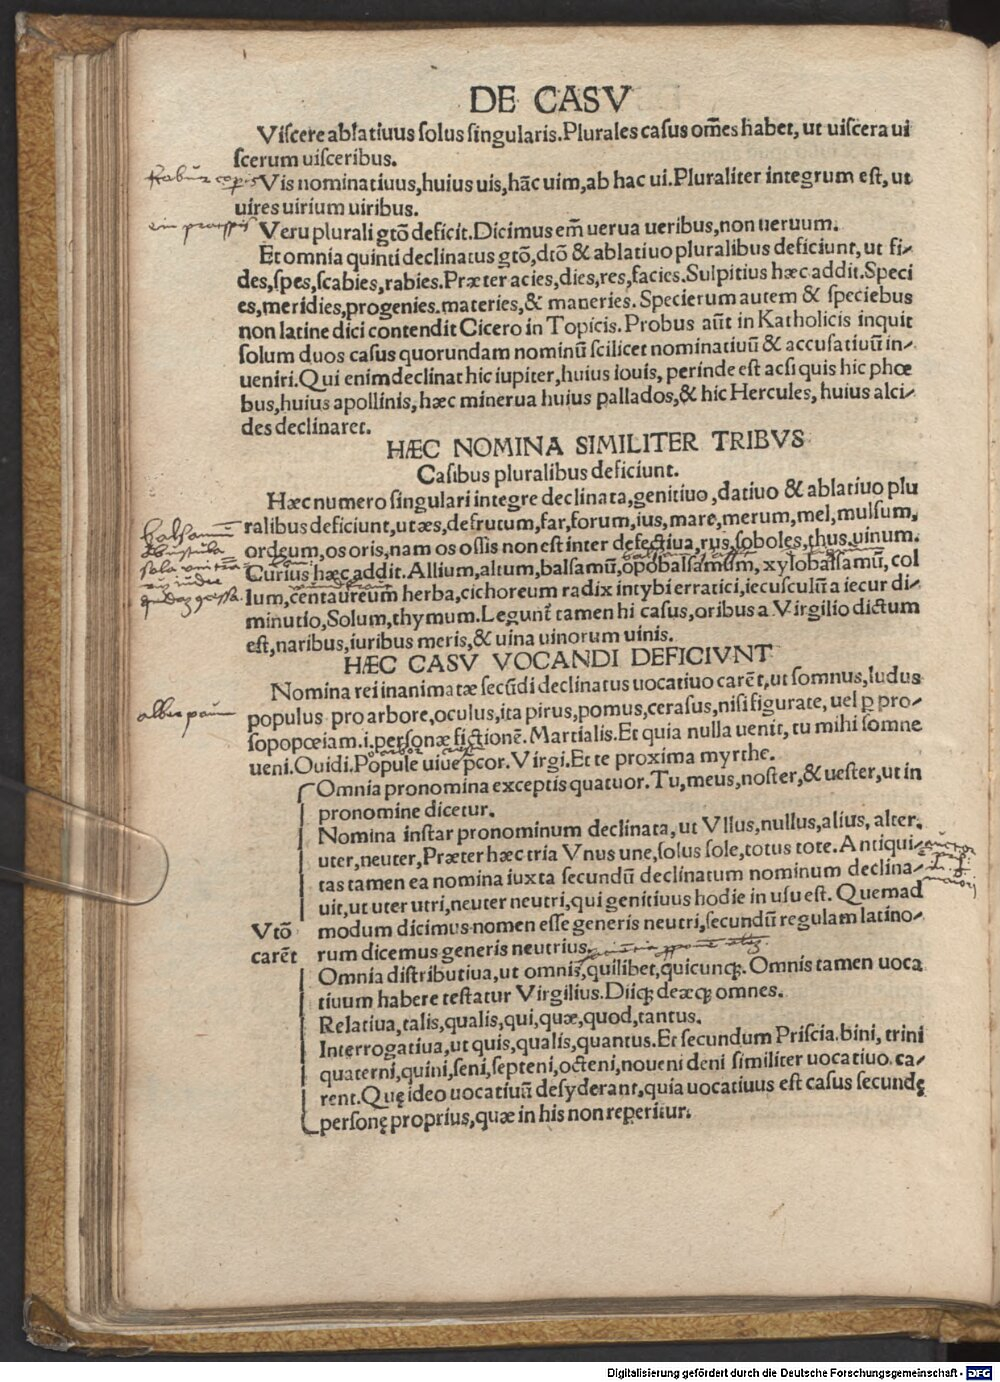 DE CASV
Viscere ablatiuus solus singularis. Plurales casus om̄es habet, ut uiscera ui
scerum uisceribus.
Vis nominatiuus, huius uis, hāc uim, ab hac ui. Pluraliter integrum est, ut
uires uirium uiribus.
Veru plurali gtō deficit. Dicimus em̄ uerua ueribus, non ueruum.
Et omnia quinti declinatus gtō, dtō & ablatiuo pluralibus deficiunt, ut fi-
des, spes, scabies, rabies. Præter acies, dies, res, facies. Sulpitius hæc addit. Speci
es, meridies, progenies. materies, & maneries. Specierum autem & speciebus
non latine dici contendit Cicero in Topicis. Probus aūt in Katholicis inquit
solum duos casus quorundam nominū scilicet nominatiuū & accusatiuū in-
ueniri. Qui enim declinat hic iupiter, huius iouis, perinde est acsi quis hic phœ
bus, huius apollinis, hæc minerua huius pallados, & hic Hercules, huius alci-
des declinaret.
HÆC NOMINA SIMILITER TRIBVS
Casibus pluralibus deficiunt.
Hæc numero singulari integre declinata, genitiuo, datiuo & ablatiuo plu
ralibus deficiunt, ut æs, defrutum, far, forum, ius, mare, merum, mel, mulsum,
ordeum, os oris, nam os ossis non est inter defectiua, rus, soboles, thus, uinum.
Curius hæc addit. Allium, altum, balsamū, opobalsamum, xylobalsamū, col
lum, centaureum herba, cichoreum radix intybi erratici, iecusculū a iecur di-
minutio, Solum, thymum. Legunt̄ tamen hi casus, oribus a Virgilio dictum
est, naribus, iuribus meris, & uina uinorum uinis.
HÆC CASV VOCANDI DEFICIVNT
Nomina rei inanimatæ secūdi declinatus uocatiuo carēt, ut somnus, ludus
albee pawm
populus pro arbore, oculus, ita pirus, pomus, cerasus, nisi figurate, uel p̱ pro-
sopopœiam .i. personæ fictionē. Martialis. Et quia nulla uenit, tu mihi somne
ueni. Ouidi. Popule uiue p̄cor. Virgi. Et te proxima myrthe.
Omnia pronomina exceptis quatuor. Tu, meus, noster, & uester, ut in
pronomine dicetur.
Nomina instar pronominum declinata, ut Vllus, nullus, alius, alter,
uter, neuter, Præter hæc tria Vnus une, solus sole, totus tote. Antiqui-
tas tamen ea nomina iuxta secundū declinatum nominum declina-
uit, ut uter utri, neuter neutri, qui genitiuus hodie in usu est. Quemad
Vtō modum dicimus nomen esse generis neutri, secundū regulam latino-
carēt rum dicemus generis neutrius.
Omnia distributiua, ut omnis, quilibet, quicunqꝫ. Omnis tamen uoca
tiuum habere testatur Virgilius. Diiqꝫ deæqꝫ omnes.
Relatiua, talis, qualis, qui, quæ, quod, tantus.
Interrogatiua, ut quis, qualis, quantus. Et secundum Priscia. bini, trini
quaterni, quini, seni, septeni, octeni, noueni deni similiter uocatiuo. ca-
rent. Quę ideo uocatiuū desyderant, quia uocatiuus est casus secundę
personę proprius, quæ in his non reperitur.
Digitalisierung gefördert durch die Deutsche Forschungsgemeinschaft - DFG